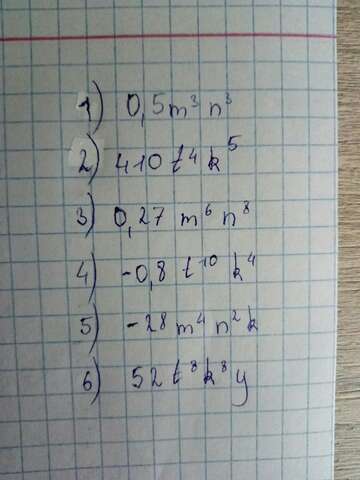 1) 0,5m³n³
2) 410t⁴k⁵
3) 0,27 m⁶n⁸
4) -0,8 t¹⁰ k⁴
5) -28m⁴n²k
6) 52t⁸k⁸y